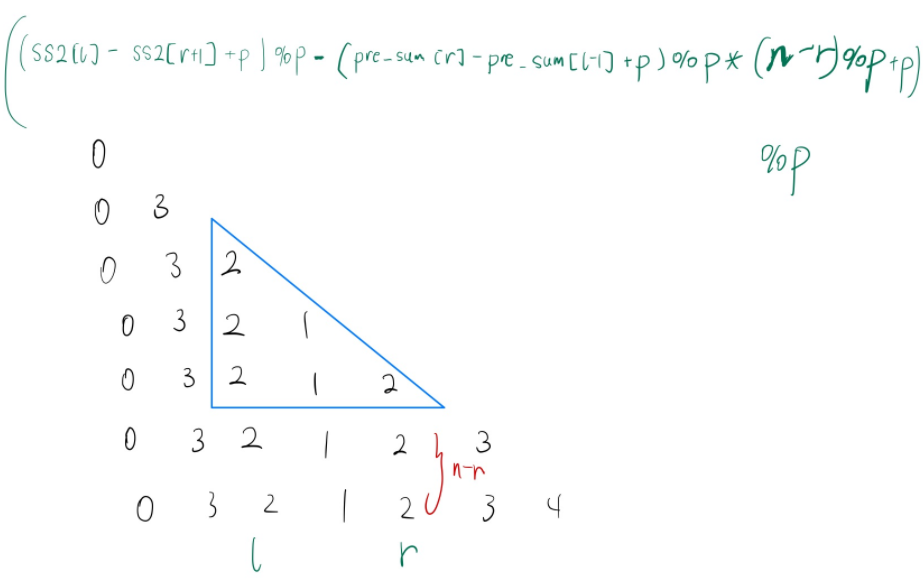 ((SS2[l] - SS2[r+1] + p) % p - (pre_sum[r] - pre_sum[l-1] + p) % p * (n-r) % p + p)
% p
0
0 3
0 3 2
0 3 2 1
0 3 2 1 2
0 3 2 1 2 3
n-r
0 3 2 1 2 3 4
l r